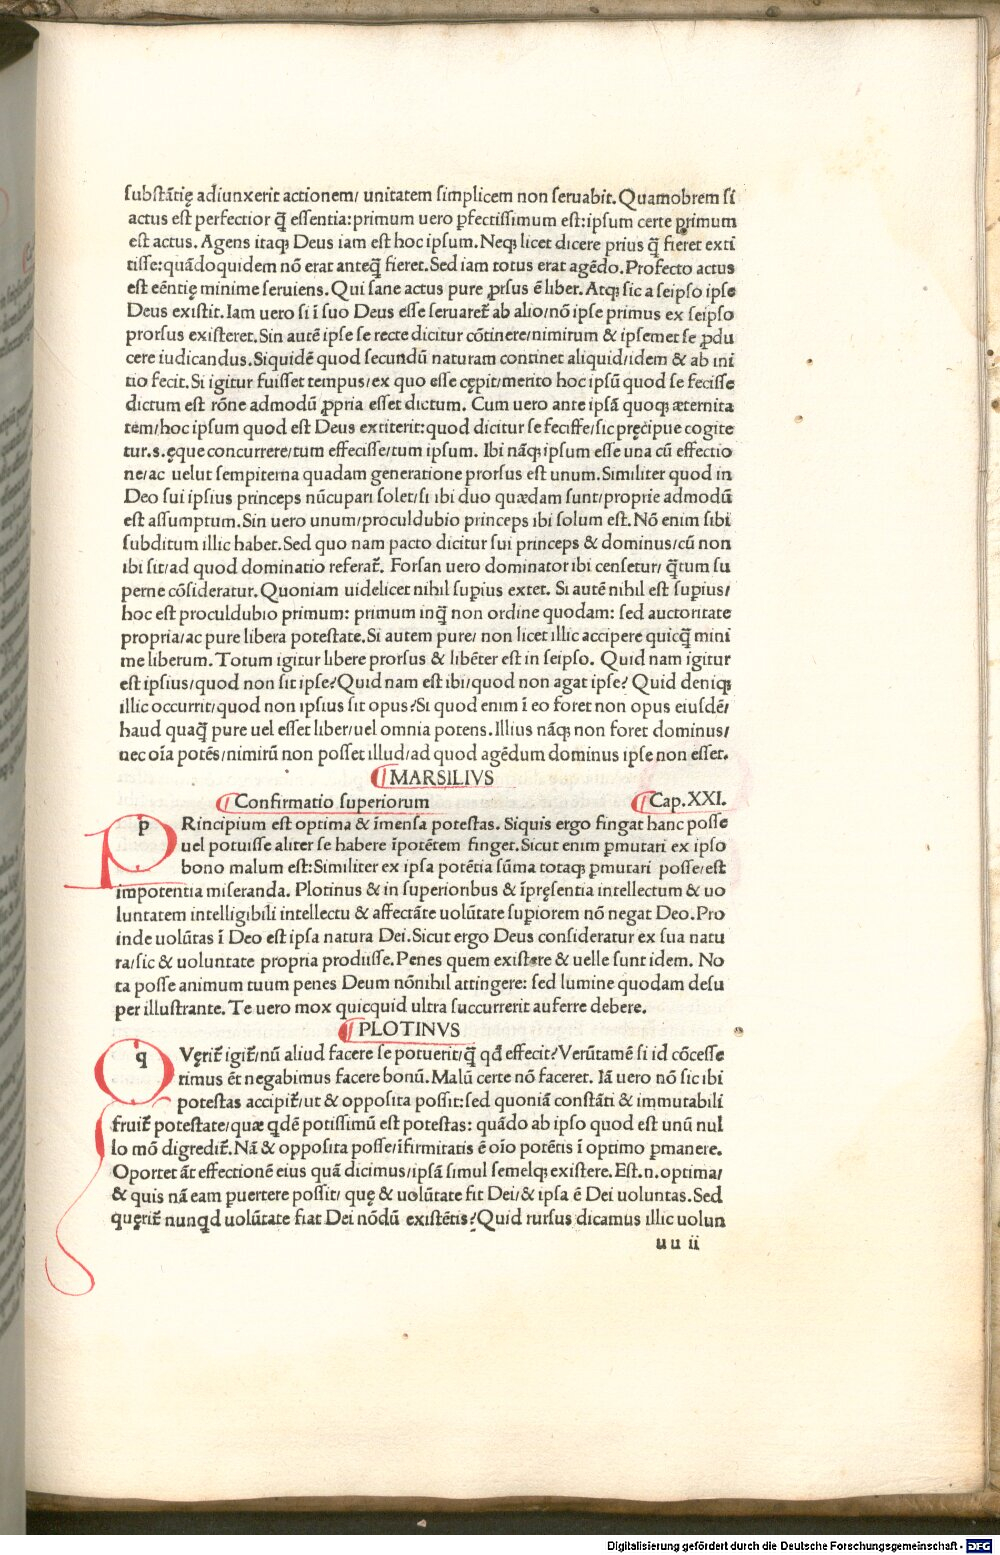 ſubſtātię adiunxerit actionem/ unitatem ſimplicem non ſeruabit. Quamobrem ſi
actus eſt perfectior q̄ eſſentia: primum uero ꝑfectiſſimum eſt: ipſum certe primum
eſt actus. Agens itaqꝫ Deus iam eſt hoc ipſum. Neqꝫ licet dicere prius q̄ fieret exti
tiſſe: quādoquidem nō erat anteq̄ fieret. Sed iam totus erat agēdo. Profecto actus
eſt eēntię minime ſeruiens. Qui ſane actus pure ꝓrſus ē liber. Atqꝫ ſic a ſeipſo ipſe
Deus exiſtit. Iam uero ſi ī ſuo Deus eſſe ſeruaret᷑ ab alio/nō ipſe primus ex ſeipſo
prorſus exiſteret. Sin autē ipſe ſe recte dicitur cōtinere/nimirum & ipſemet ſe ꝓdu
cere iudicandus. Siquidē quod ſecundū naturam continet aliquid/idem & ab ini
tio fecit. Si igitur fuiſſet tempus/ex quo eſſe cępit/merito hoc ipſū quod ſe feciſſe
dictum eſt rōne admodū ꝓpria eſſet dictum. Cum uero ante ipſā quoqꝫ æternita
tem/hoc ipſum quod eſt Deus extiterit: quod dicitur ſe feciſſe/ſic pręcipue cogite
tur.s.ęque concurrere/tum effeciſſe/tum ipſum. Ibi nāqꝫ ipſum eſſe una cū effectio
ne/ac uelut ſempiterna quadam generatione prorſus eſt unum. Similiter quod in
Deo ſui ipſius princeps nūcupari ſolet/ſi ibi duo quædam ſunt/proprie admodū
eſt aſſumptum. Sin uero unum/proculdubio princeps ibi ſolum eſt. Nō enim ſibi
ſubditum illic habet. Sed quo nam pacto dicitur ſui princeps & dominus/cū non
ibi ſit/ad quod dominatio referat᷑. Forſan uero dominator ibi cenſetur/ q̄tum ſu
perne cōſideratur. Quoniam uidelicet nihil ſuꝑius extet. Si autē nihil eſt ſuꝑius/
hoc eſt proculdubio primum: primum inq̄ non ordine quodam: ſed auctoritate
propria/ac pure libera poteſtate. Si autem pure/ non licet illic accipere quicq̄ mini
me liberum. Totum igitur libere prorſus & libēter eſt in ſeipſo. Quid nam igitur
eſt ipſius/quod non ſit ipſe? Quid nam eſt ibi/quod non agat ipſe? Quid deniqꝫ
illic occurrit/quod non ipſius ſit opus? Si quod enim ī eo foret non opus eiuſdē/
haud quaq̄ pure uel eſſet liber/uel omnia potens. Illius nāqꝫ non foret dominus/
nec oīa potēs/nimirū non poſſet illud/ad quod agēdum dominus ipſe non eſſet.
¶MARSILIVS
¶Confirmatio ſuperiorum ¶Cap.XXI.
pRincipium eſt optima & īmenſa poteſtas. Siquis ergo fingat hanc poſſe
uel potuiſſe aliter ſe habere īpotētem finget. Sicut enim ꝑmutari ex ipſo
bono malum eſt: Similiter ex ipſa potētia ſūma totaqꝫ ꝑmutari poſſe/eſt
impotentia miſeranda. Plotinus & in ſuperioribus & īpręſentia intellectum & uo
luntatem intelligibili intellectu & affectāte uolūtate ſuꝑiorem nō negat Deo. Pro
inde uolūtas ī Deo eſt ipſa natura Dei. Sicut ergo Deus conſideratur ex ſua natu
ra/ſic & uoluntate propria produſſe. Penes quem exiſtere & uelle ſunt idem. No
ta poſſe animum tuum penes Deum nōnihil attingere: ſed lumine quodam deſu
per illuſtrante. Te uero mox quicquid ultra ſuccurrerit auferre debere.
¶PLOTINVS
qVęrit᷑ igit᷑/nū aliud facere ſe potuerit/q̄ qd̄ effecit? Verūtamē ſi id cōceſſe
rimus ēt negabimus facere bonū. Malū certe nō faceret. Iā uero nō ſic ibi
poteſtas accipit᷑/ut & oppoſita poſſit: ſed quoniā conſtāti & immutabili
fruit᷑ poteſtate/quæ qdē potiſſimū eſt poteſtas: quādo ab ipſo quod eſt unū nul
lo mō digredit᷑. Nā & oppoſita poſſe/īfirmitatis ē oīo potētis ī optimo ꝑmanere.
Oportet āt effectionē eius quā dicimus/ipſā ſimul ſemelqꝫ exiſtere. Eſt.n.optima/
& quis nā eam ꝑuertere poſſit/ quę & uolūtate fit Dei/& ipſa ē Dei uoluntas. Sed
quęrit᷑ nunqd uolūtate fiat Dei nōdū exiſtētis? Quid rurſus dicamus illic uolun
uu ii
Digitalisierung gefördert durch die Deutsche Forschungsgemeinschaft - DFG